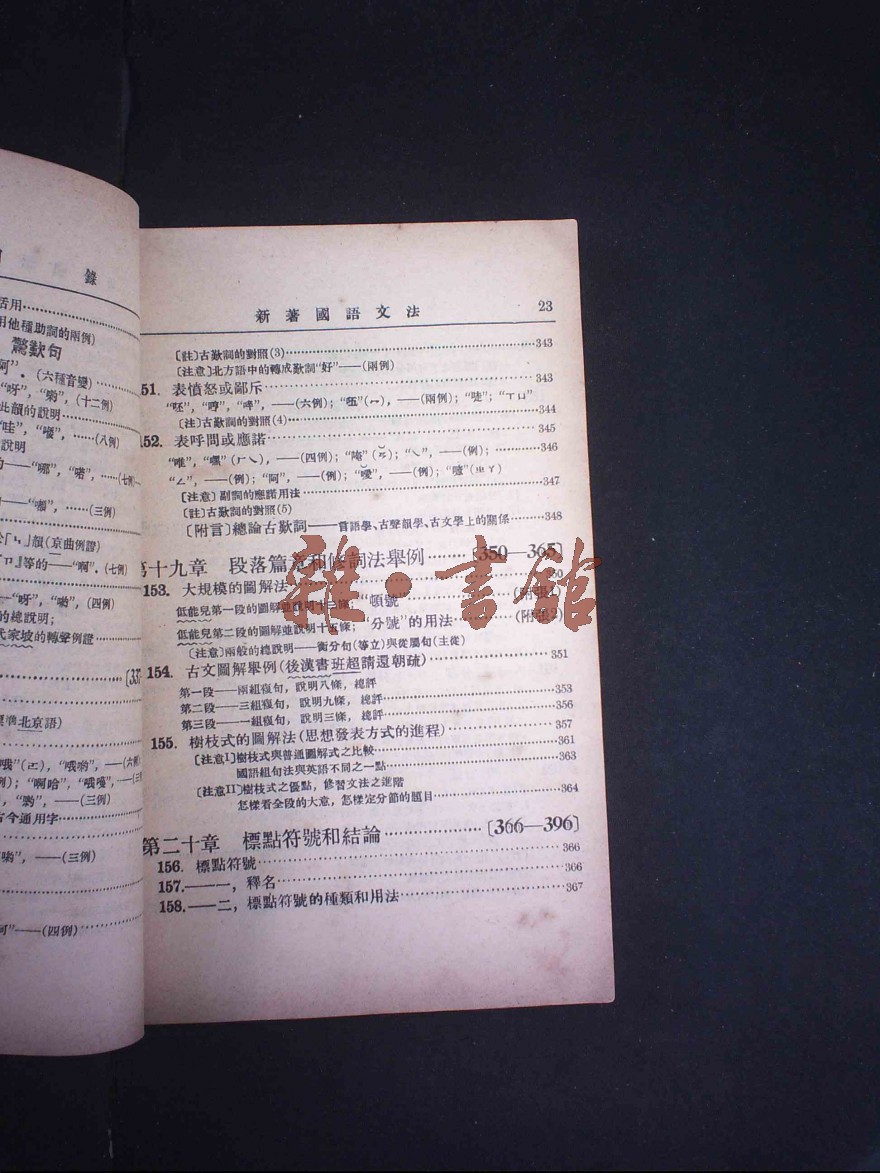 錄
活用
用他種助詞的兩例)
驚歎句
(六種音變)
“呀”, “喲”, (十二例)
此韻的說明
“哇”, ……(八例)
說明
“哪”, “喏”,
——(三例)
韻(京曲例證)
等的——“啊”, (七例)
——“呀”, “喲”, (四例)
的總說明;
武家坡的轉聲例證
北京語)
“哦喲”, ——(六例)
“啊哈”,
“喲”, ——(三例)
古今通用字
——(三例)
——(四例)
新著國語文法 23
〔註〕古歎詞的對照(3) 343
〔注意〕北方語中的轉成歎詞“好”——(兩例)
151. 表憤怒或鄙斥 343
“呸”, “哼”, “啐”, ——(六例); ——(兩例);
〔注〕古歎詞的對照(4) 344
152. 表呼問或應諾 345
“唯”, “嘿”(ㄏㄟ), ——(四例); ——(例); 346
——(例); “阿”, ——(例); ——(例);
〔注意〕副詞的應諾用法 347
〔註〕古歎詞的對照(5)
〔附言〕總論古歎詞——言語學、古聲韻學、古文學上的關係 348
第十九章 段落篇章和修詞法舉例 〔350—365〕
153. 大規模的圖解法
低能兒第一段的圖解並說明十二條; “頓號” (附張1)
低能兒第二段的圖解並說明十五條; “分號”的用法 (附張2)
〔注意〕兩般的總說明——衡分句(等立)與從屬句(主從)
154. 古文圖解舉例(後漢書班超請還朝疏) 351
第一段——兩組複句, 說明八條, 總評
第二段——三組複句, 說明九條, 總評 353
第三段——一組複句, 說明三條, 總評 356
155. 樹枝式的圖解法(思想發表方式的進程) 357
〔注意I〕樹枝式與普通圖解式之比較 361
國語組句法與英語不同之一點 363
〔注意II〕樹枝式之優點, 修習文法之進階
怎樣看全段的大意, 怎樣定分節的題目 364
第二十章 標點符號和結論 〔366—396〕
156. 標點符號 366
157.——一, 釋名 366
158.——二, 標點符號的種類和用法 367
雜·書館